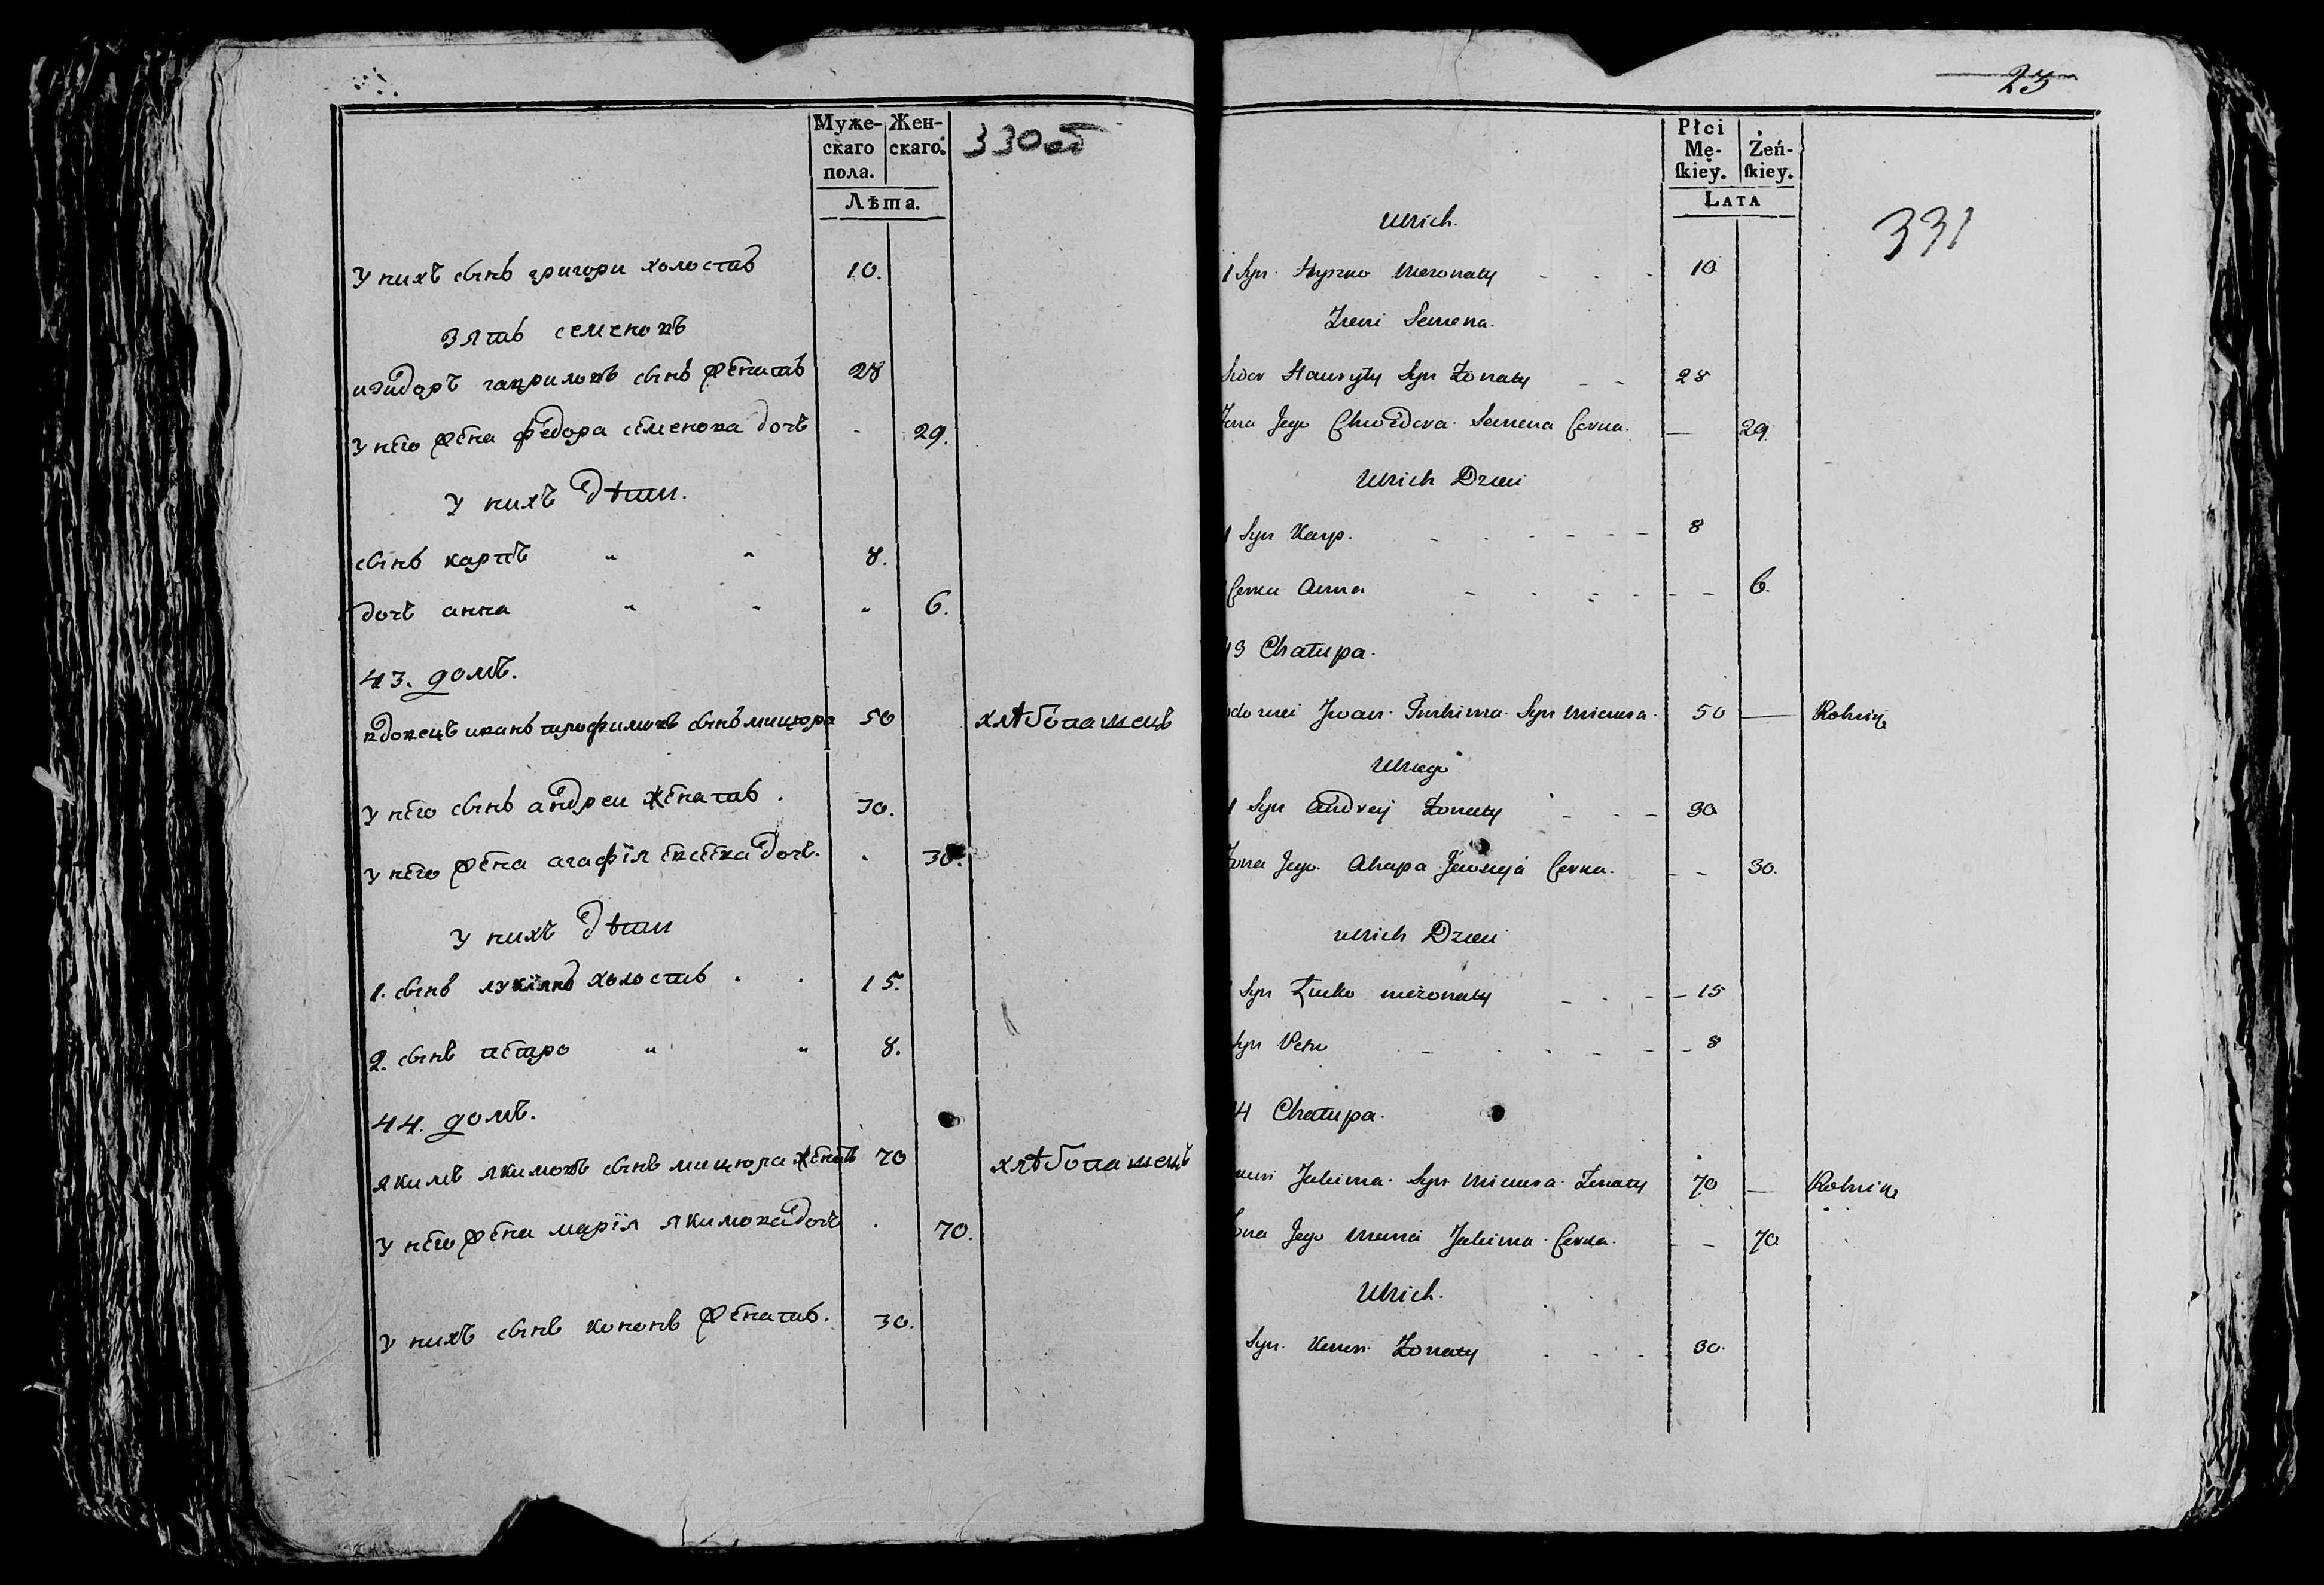 Муже-
скаго
пола.
Жен-
скаго.
Лѣта.
330об
У нихъ сынъ григори холостъ 10.
Зять семеновъ
изидоръ гавриловъ сынъ женатъ 28
У него жена федора семенова дочъ - 29.
У нихъ дѣти.
сынъ карпъ " " 8.
дочъ анна " " " 6.
43. домъ.
вдовецъ иванъ трофимовъ сынъ мицюра 50 хлѣбопашецъ
У него сынъ андреи женатъ. 30.
У него жена агафїя евсеева дочъ. . 30.
У нихъ дѣти
1. сынъ лукїянъ холостъ . . 15.
2. сынъ петро " " 8.
44. домъ.
якимъ якимовъ сынъ мицюра женатъ 70 хлѣбопашецъ
У него жена марїя якимова дочъ . 70.
У нихъ сынъ кононъ женатъ. 30.
25
Płci
Mę-
ſkiey.
Żeń-
ſkiey.
LATA
331
Ulnich.
1 Syn Hryzko nieżonaty - - - 10
Semena.
Hawryły Syn Żonaty - - 28
Jego Chwedora Semena Corka. — 29.
Ulnich Dzieci
1 Syn Karp. - - - - - - 8
Corka Anna - - - - - - 6.
43 Chałupa.
Iwan Syn 50 — Rolnik
Ulnego
1 Syn Andrey Żonaty - - - 30
Żona Jego Ahapa Corka. - - 30.
Ulnich Dzieci
Syn nieżonaty - - - - 15
Syn Petro - - - - - - 8
44 Chałupa.
Jakima Syn Żonaty 70 — Rolnik
Żona Jego Jakima Corka. - - 70
Ulnich.
Syn Żonaty . . . . 30.